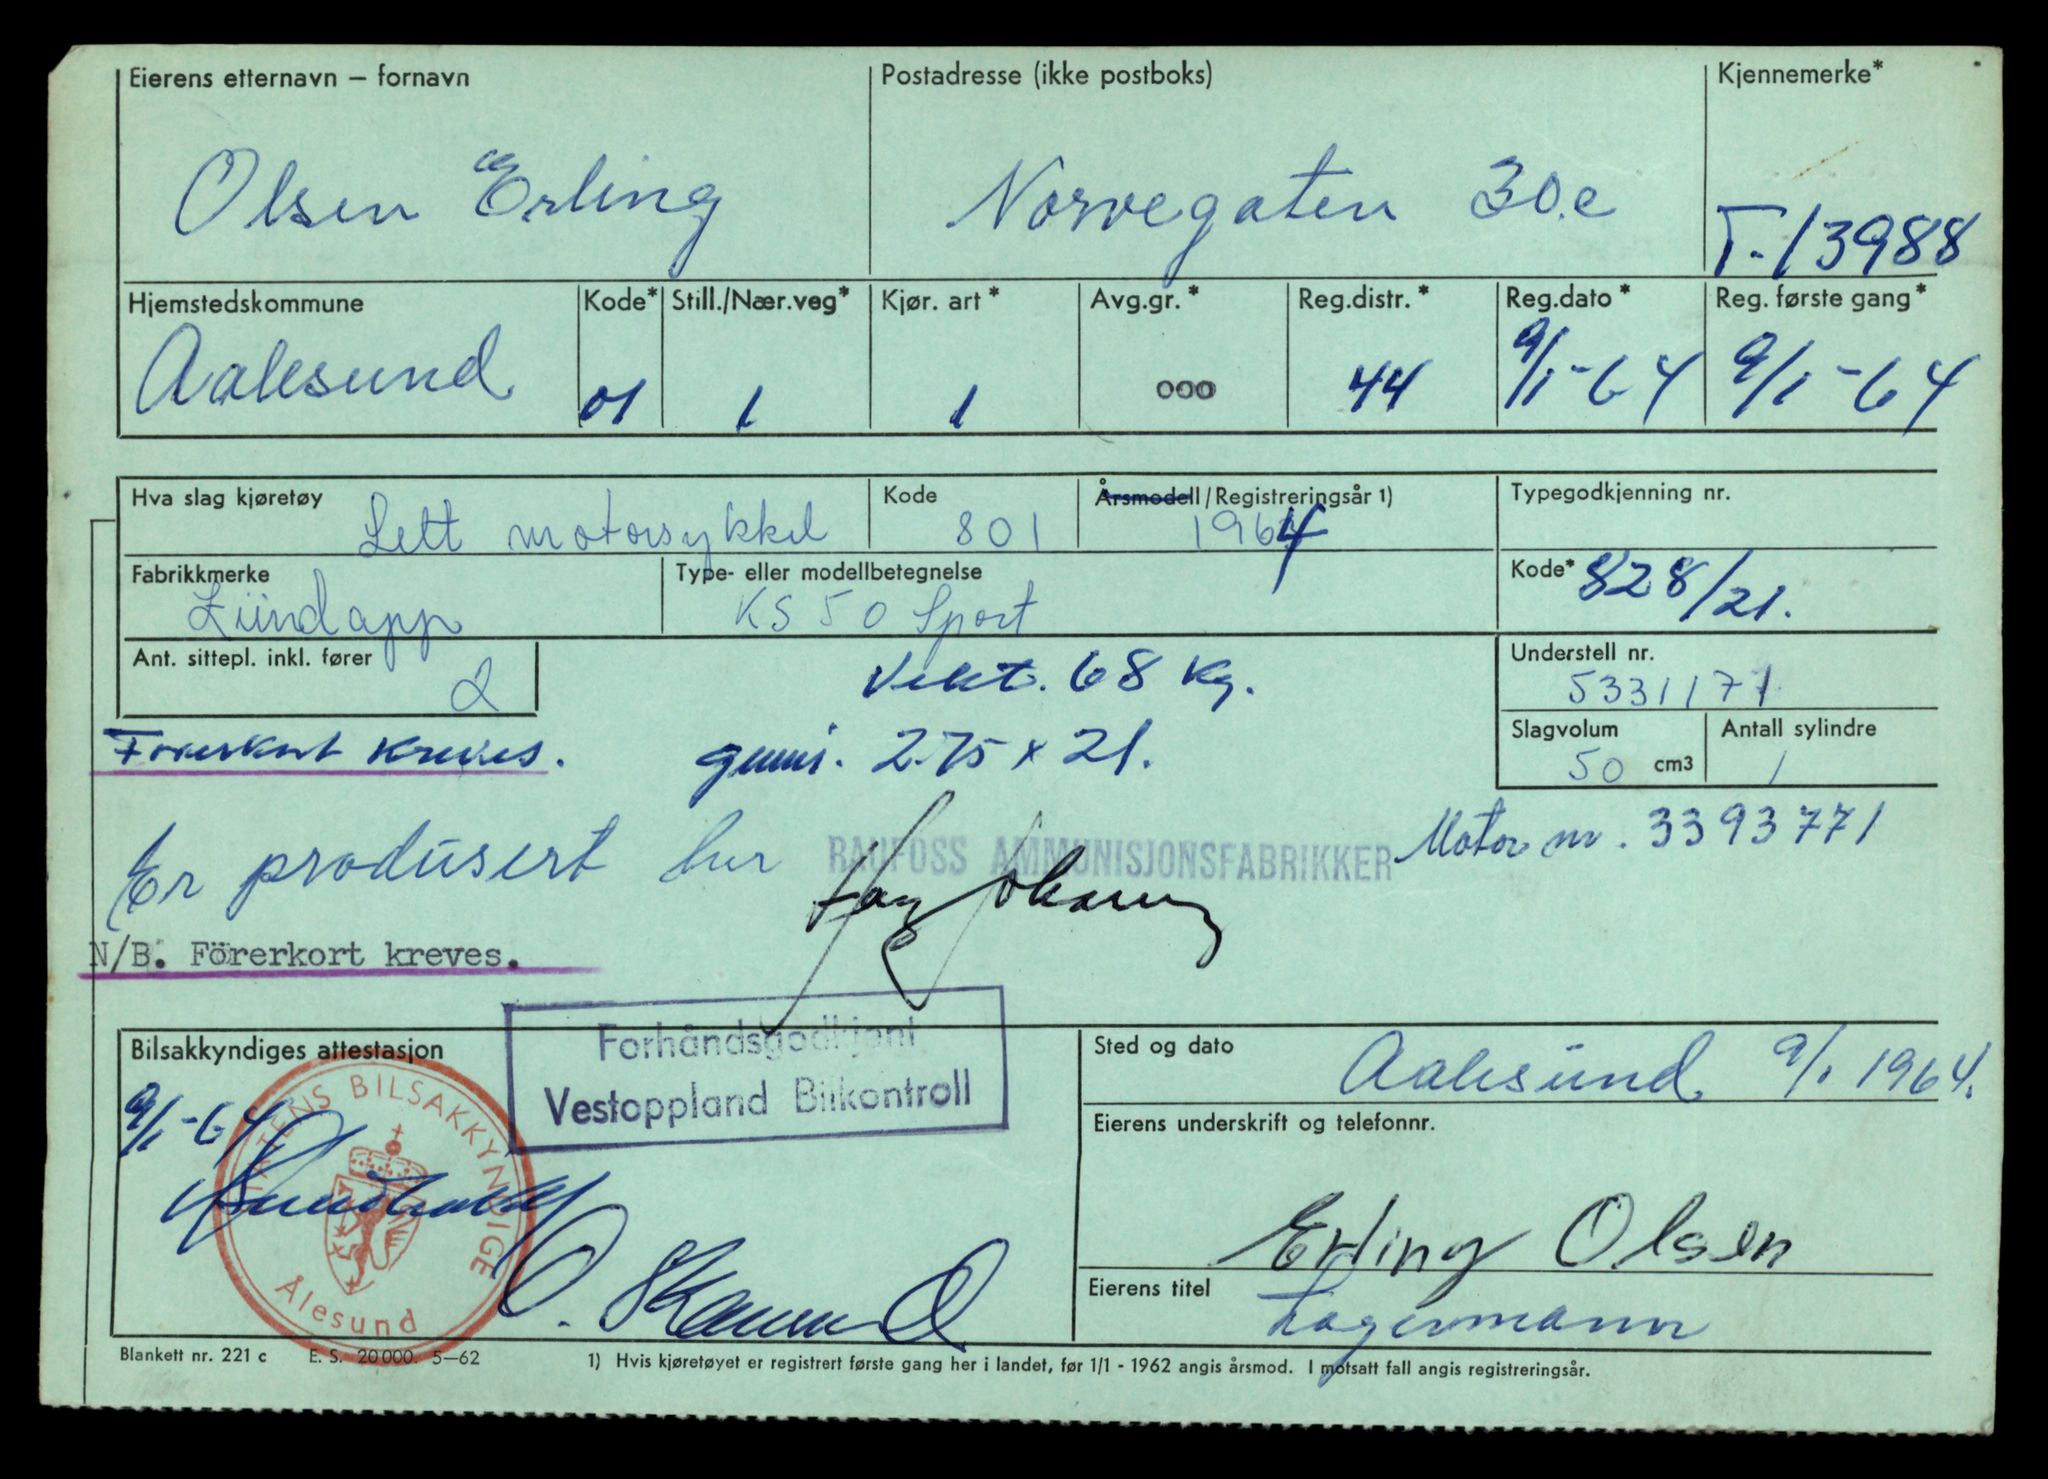 Eierens etternavn – fornavn Postadresse (ikke postboks) Kjennemerke*
Olsen Erling Norvegaten 30.c T-13988
Hjemstedskommune Kode* Still./Nær.veg* Kjør. art* Avg.gr.* Reg.distr.* Reg.dato* Reg. første gang*
Aalesund 01 1 1 000 44 9/1-64 9/1-64
Hva slag kjøretøy Kode Årsmodell/Registreringsår 1) Typegodkjenning nr.
Lett motorsykkel 801 1964
Fabrikkmerke Type- eller modellbetegnelse Kode* 828/21.
Zündapp KS 50 Sport
Ant. sittepl. inkl. fører Understell nr.
2 Vekt. 68 kg. 5331171
Slagvolum Antall sylindre
Førerkort kreves. gumi. 2.75 x 21. 50 cm3 1
Er produsert hur RAUFOSS AMMUNISJONSFABRIKKER Motor nr. 3393771
N/B. Förerkort kreves.
Forhåndsgodkjent
Vestoppland Bilkontroll
Bilsakkyndiges attestasjon Sted og dato
9/1-64 Aalesund 9/1 1964.
STATENS BILSAKKYNDIGE
Ålesund
Eierens underskrift og telefonnr.
Erling Olsen
Eierens titel
Lagermann
Blankett nr. 221 c E. S. 20 000. 5–62 1) Hvis kjøretøyet er registrert første gang her i landet, før 1/1 - 1962 angis årsmod. I motsatt fall angis registreringsår.